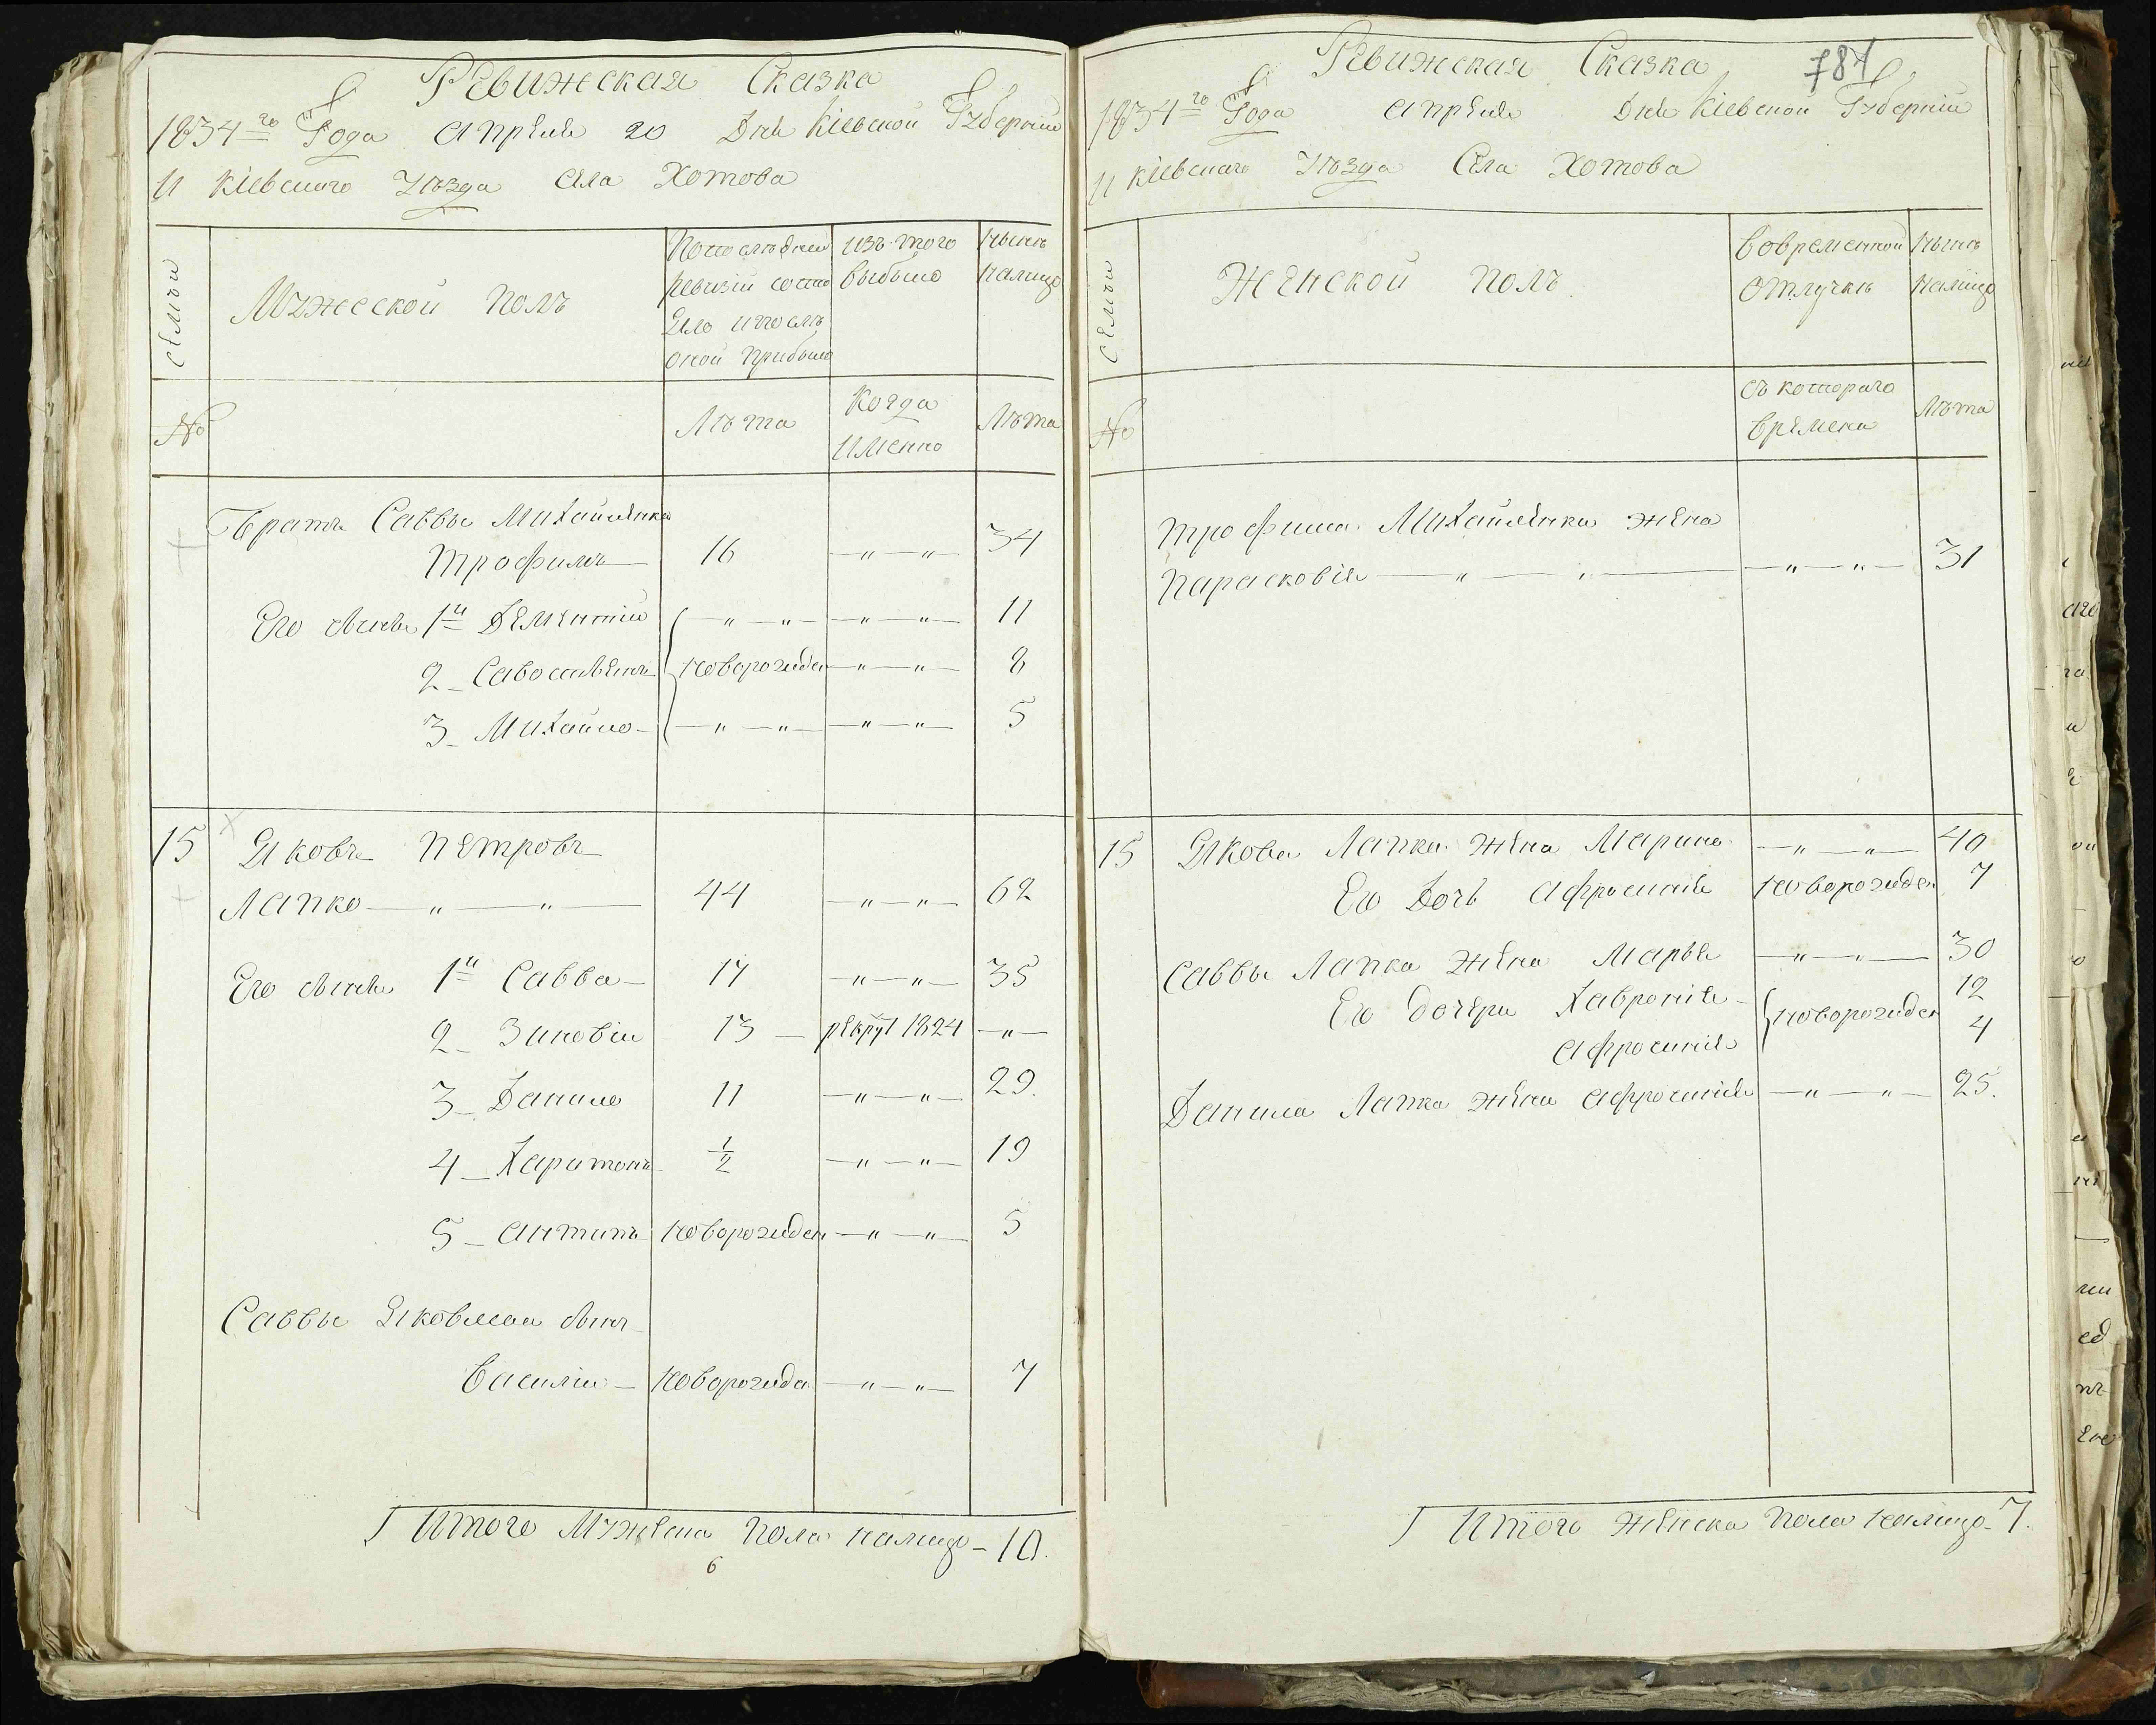 Ревижская Сказка
1834го Года Апреля 20 Дня Кіевской Губерніи
И Кіевского Уѣзда Села Хотова
Семьи
Мужеской полъ
По последней
ревизіи состо
яло и после
оной прибыло
изъ того
выбыло
Нынѣ
налицо
№
Лѣта
Когда
Именно
Лѣта
Братъ Саввы Михайленка
Трофимъ 16 —"—"— 34
Его сыновья 1й Дементій —"—"— —"—"— 11
2 Савостьянъ новорожден —"—"— 8
3 Михайло —"—"— —"—"— 5
15 Яковъ Петровъ
Лапко —"—"— 44 —"—"— 62
Его сыновья 1й Савва 17 —"—"— 35
2 Зиновій 13 рекрут 1824 —"—
3 Данило 11 —"—"— 29.
4 Харитонъ 1/2 —"—"— 19
5 Антипъ новорожден —"—"— 5
Саввы Яковлева сынъ
Василій новорожден —"—"— 7
Итого Мужеска пола налицо 10.
6
787
Ревижская Сказка
1834го Года Апреля Дня Кіевской Губерніи
И Кіевского Уѣзда Села Хотова
Семьи
Женской полъ
Вовременной
отлучкѣ
Нынѣ
налицо
№
Съ которого
времени
Лѣта
Трофима Михайленка жена
Парасковія —"—"— —"—"— 31
15 Якова Лапка жена Марина —"—"— 40
Его Дочь Афросинія новорожден 7
Саввы Лапка жена Марья —"—"— 30
Его дочери Хавронія новорожден 12
Афросинія 4
Данила Лапка жена Афросинія —"—"— 25.
Итого женска пола налицо 7.